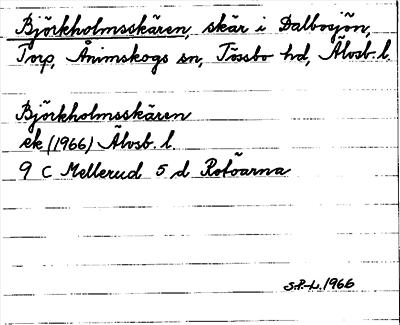 Björkholmsskären, skär i Dalbosjön,
Torp, Ånimskogs sn, Tössbo hd, Älvsb. l.
Björkholmsskären
ek (1966) Älvsb. l.
9 C Mellerud 5 d Rotöarna
S.P-L. 1966